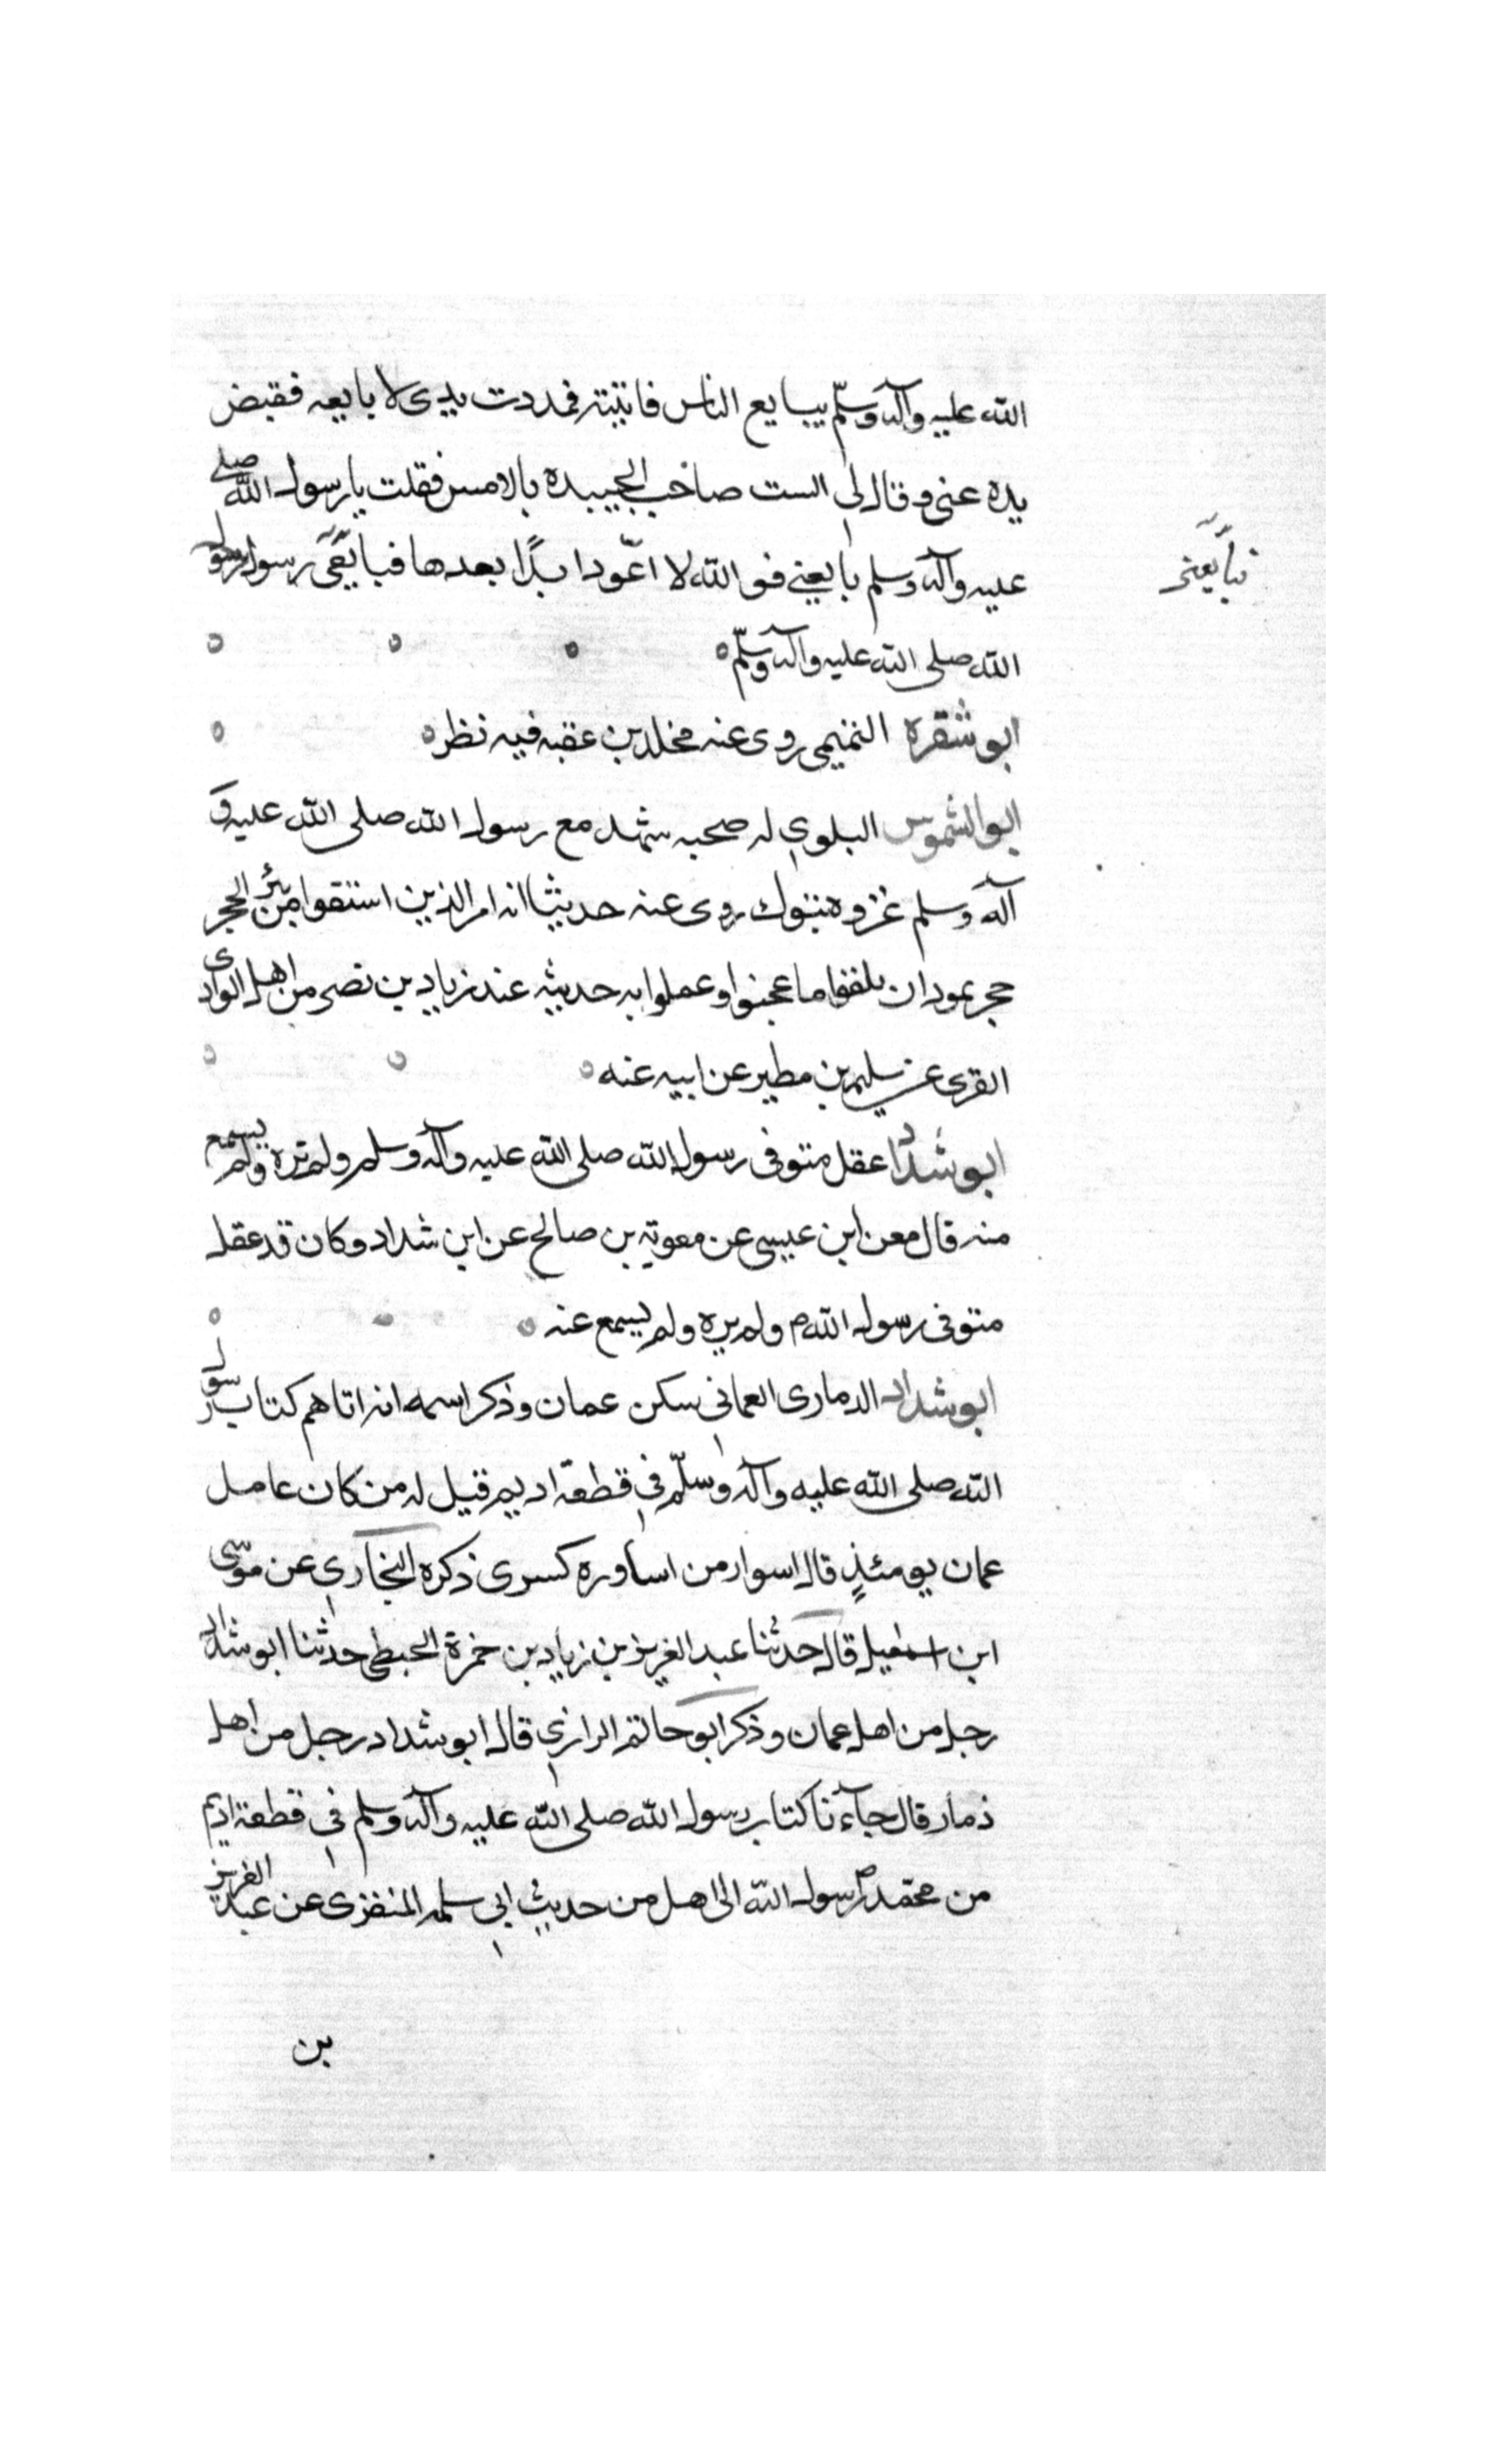 الله عليه وآله وسلّم يبايع الناس فاتيته فمددت يدى لابايعه فقبض
يده عنى وقال لى الست صاحب الجبيده بالامس فقلت يا رسول الله صلى
عليه وآله وسلم بايعنى فوالله لا اعود ابدًا بعدها فبايعنى رسول
فبايعنى
الله صلى الله عليه وآله وسلّم
ابو شقره التميمى روى عنه مخلد بن عقبه فيه نظر
ابو الشموس البلوى له صحبه شهد مع رسول الله صلى الله عليه و
آله وسلم غزوه تبوك روى عنه حديثا انه امر الذين استقوا من بئر الحجر
حجر ثمود ان يلقوا ما عجنوا وعملوا به حديثه عند زياد بن نصر من اهل الوادى
القرى عن سليم بن مطير عن ابيه عنه
ابو شداد عقل متوفى رسول الله صلى الله عليه وآله وسلم ولم يره ولم يسمع
منه قال معن ابن عيسى عن معوية بن صالح عن ابن شداد وكان قد عقل
متوفى رسول الله م ولم يره ولم يسمع عنه
ابو شداد الدمارى العمانى سكن عمان وذكر اسمه انه اتاهم كتاب رسول
الله صلى الله عليه وآله وسلّم فى قطعة اديم قيل له من كان عامل
عمان يومئذٍ قال اسوار من اساوره كسرى ذكره البخارى عن موسى
ابن اسمعيل قال حدثنا عبد العزيز بن زياد بن حمزة الحبطى حدثنا ابو شداد
رجل من اهل عمان وذكر ابو حاتم الرازى قال ابو شداد رجل من اهل
ذمار قال جآءنا كتاب رسول الله صلى الله عليه وآله وسلم فى قطعة اديم
من محمد رسول الله الى اهل من حديث ابى سلمه المنقرى عن عبد العزيز
بن